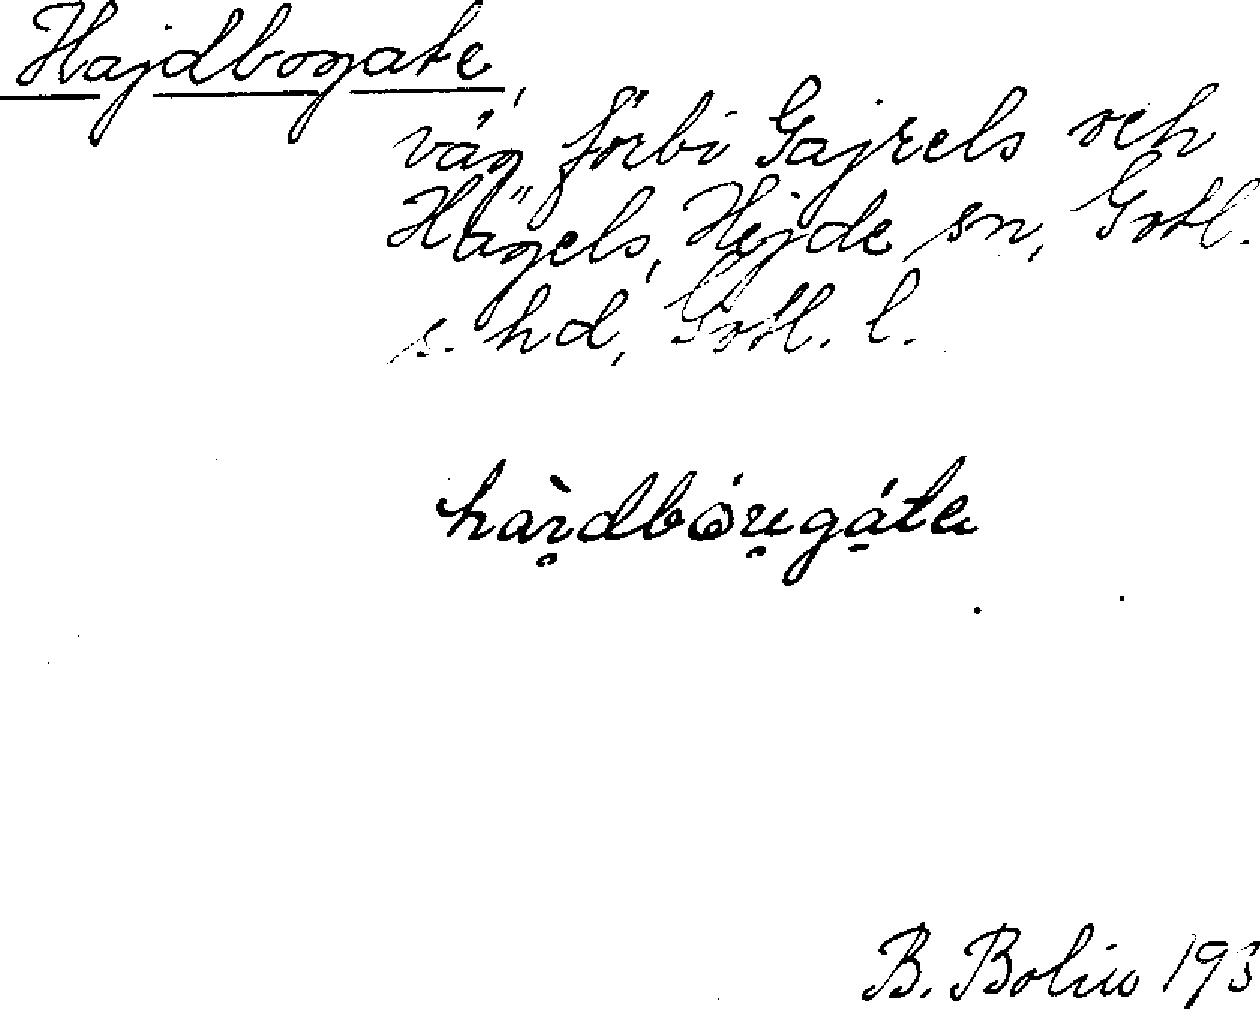 Hajdbogate,
väg förbi Gajrels och
Hägels, Hejde sn, Gotl.
s. hd, Gotl. l.
B. Bolin 193